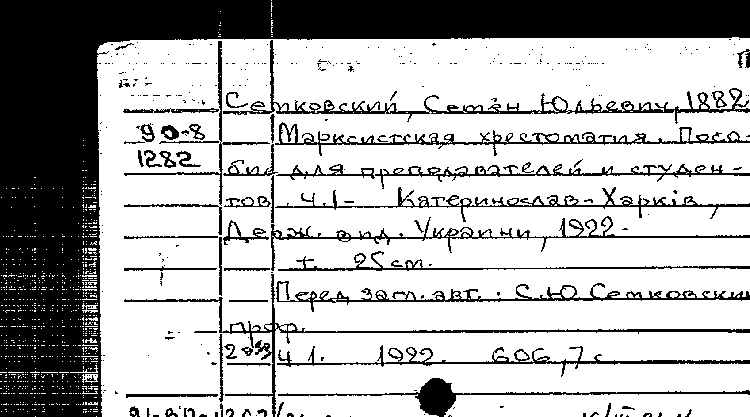 Семковский, Семэн Юльевич, 1882
90-8 Марксистская хрестоматия. Посо-
1282 бие для преподавателей и студен-
тов. Ч.1- Катеринослав-Харкiв,
Держ. вид. Украини, 1922-
т. 25см.
Перед загл. авт.: С.Ю Семковский
проф.
Ч 1. 1922. 606,7 с